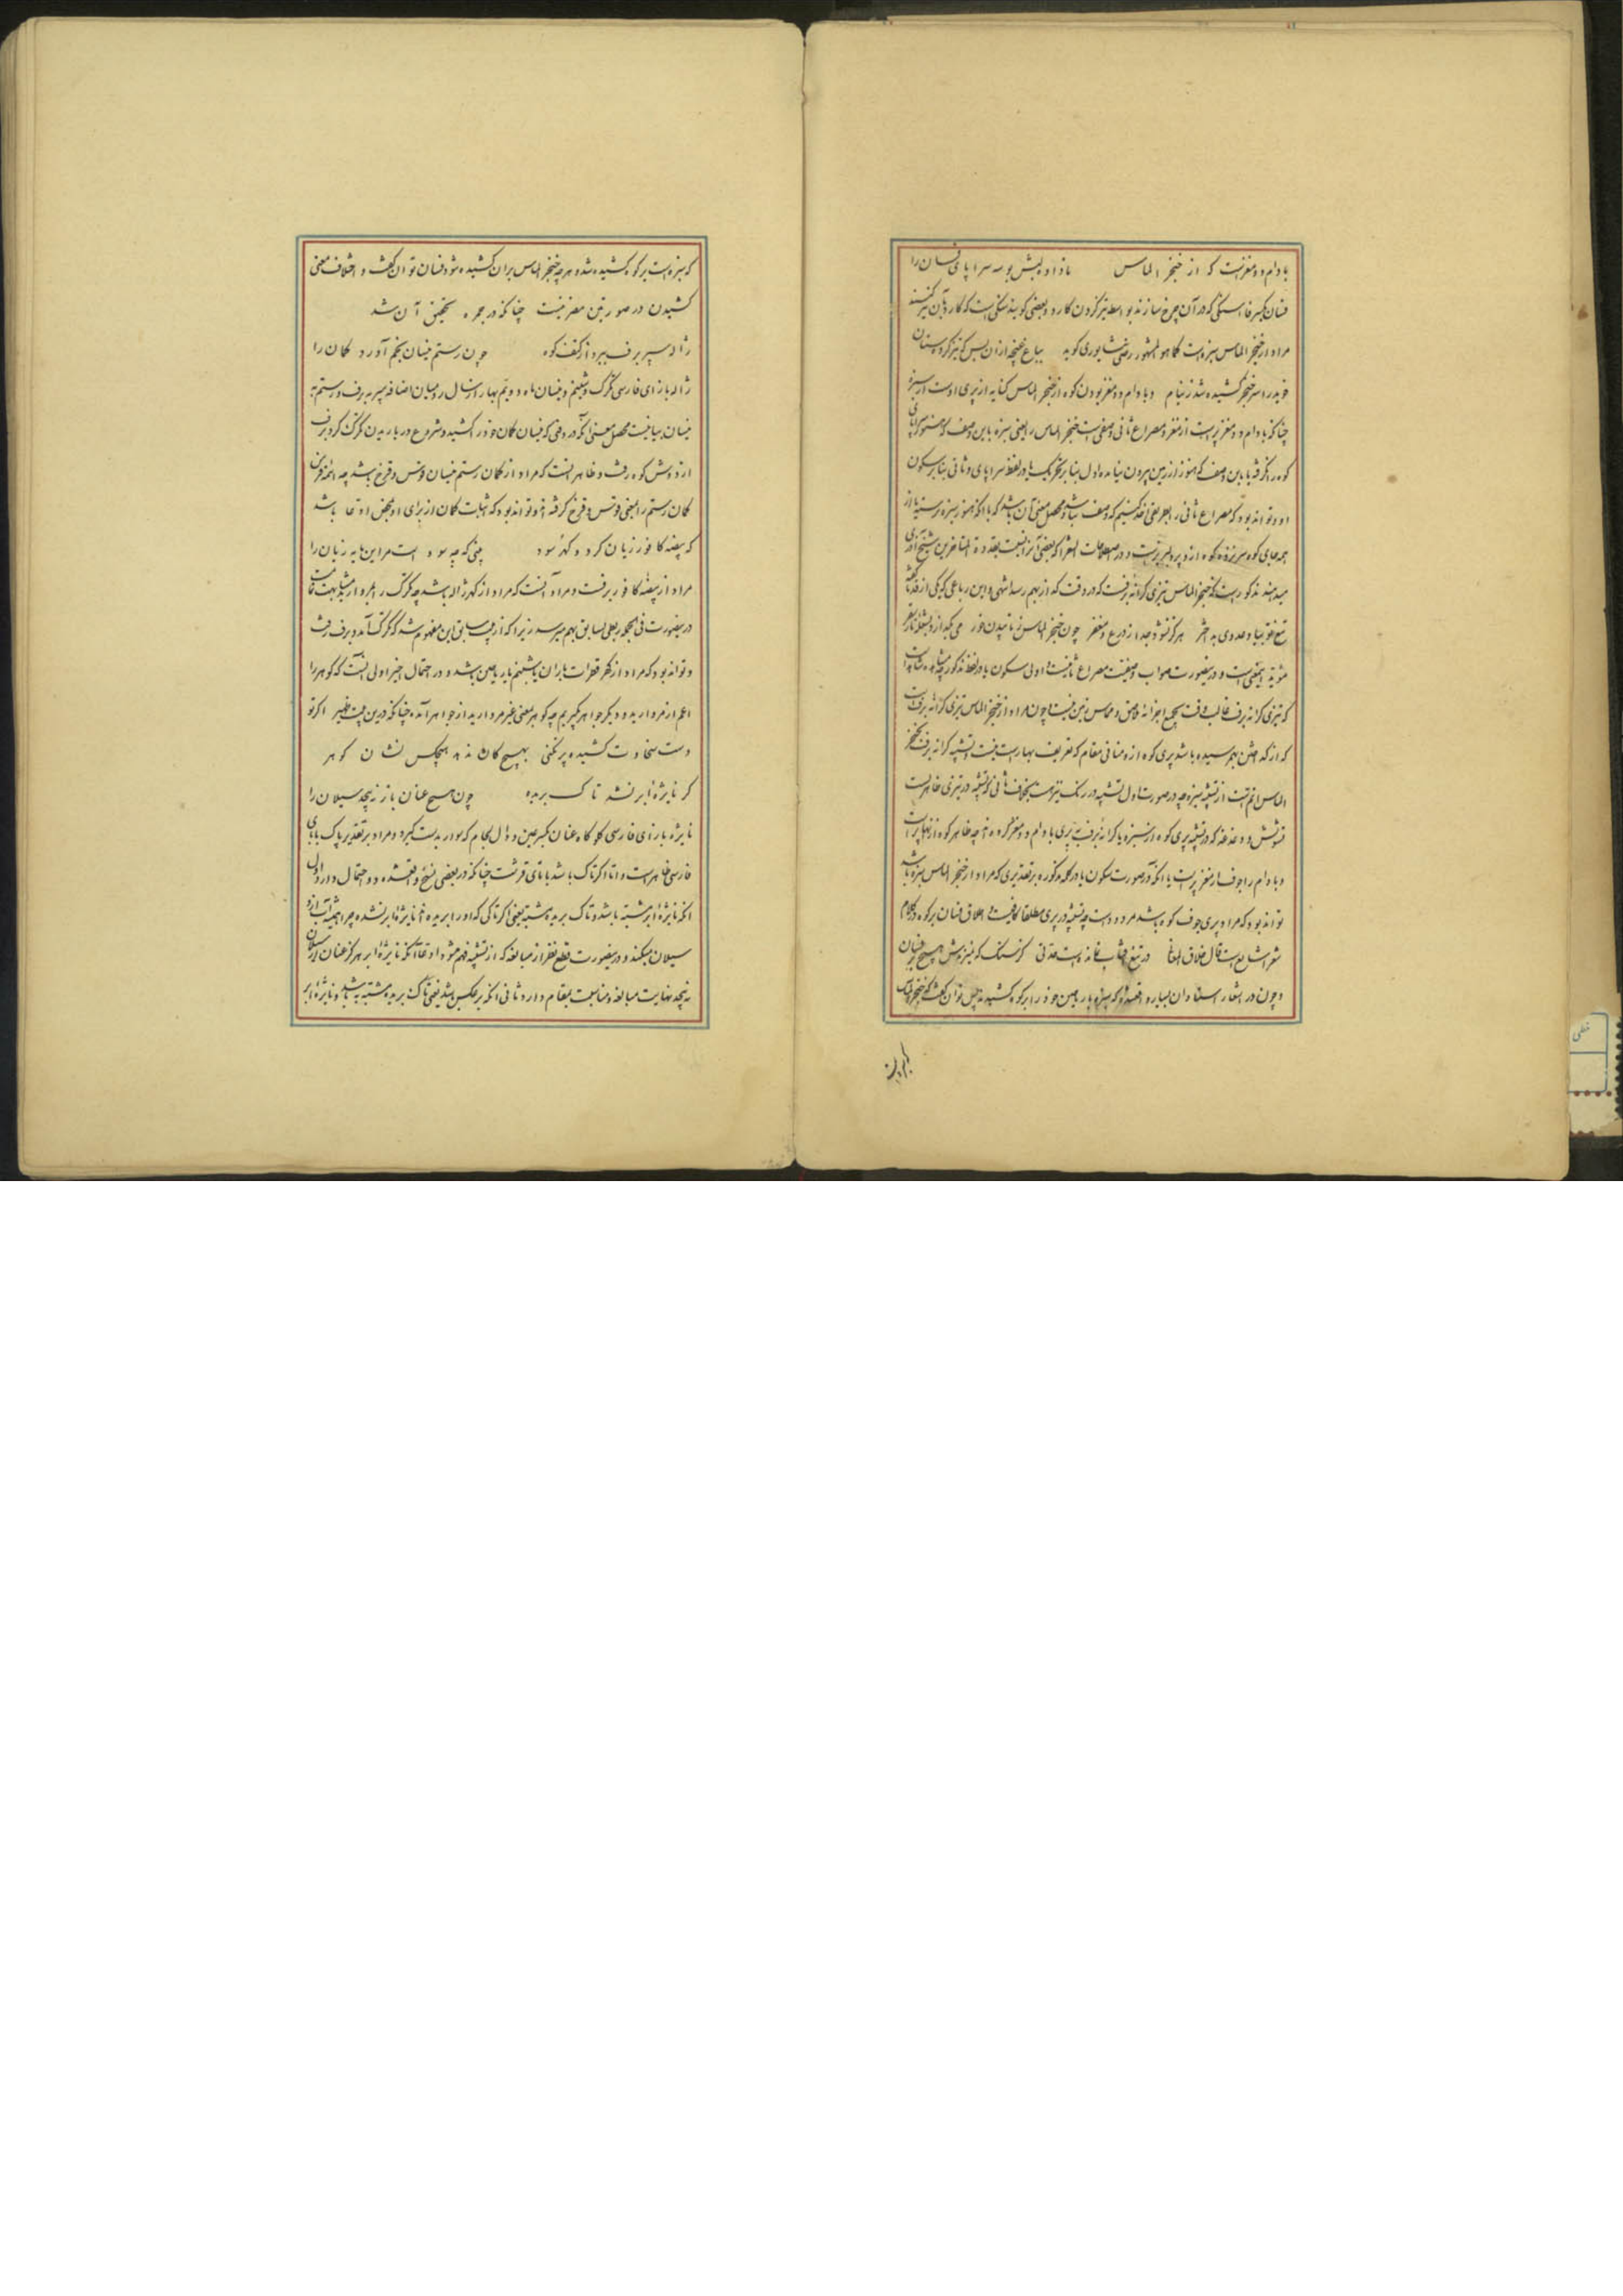 بادام دو مغزست که از خنجر الماس ناداده لبش بوسه سراپای فسان را
فسان بکسر فا سنگی که در آن چرخ سازند بواسطه تیز کردن کارد و بعضی گویند سنگی است که کارد بآن تیز کنند
مراد از خنجر الماس سبزه است کما هو المشهور رضی نشابوری گوید بباغ غنچه ازان پس که تیز کرد سنان
خوید را سر خنجر کشیده شد ز نیام و بادام دو مغز بودن کوه از خنجر الماس کنایه از پری اوست از سبزه
چنانکه بادام دو مغز پر است از مغز و مصراع ثانی وصفی است خنجر الماس را یعنی سبزه باین وصف که هنوز سراپای
کوه را نگرفته یا باین وصف که هنوز از زمین بیرون نیامده اول بنا بر تحریک یا در لفظ سراپای و ثانی بنا بر سکون
او و تواند بود که مصراع ثانی را بطریقی اخذ کنیم که وصف نباشد و محصل معنی آن باشد که با آنکه هنوز سبزه نرسته یا از
همه جای کوه سر نزده کوه ازو پر و لبریزست و در اصطلاحات الشعرا که بعضی آنرا نسبت بقدوة المتاخرین شیخ آذری
میدهند مذکور است که خنجر الماس تیزی کرانه برفست که در وقت که از بهم رسد انتهی و این رباعی که یکی از قدما گفته
تیغ تو بیناد عدوی بد اختر هرگز نشود جدا ز درع و مغفر چون خنجر الماس ز تابیدن خور می بگدازد بشعله نار سقر
مؤید این معنی است و در این صورت صواب وصفیت مصراع ثانیست و اولی سکون یا در لفظ مذکور چه مشاهده شده است
که تیزی کرانه برف غالب وقت بجمیع اجزائه ملاصق و مماس زمین نیست چون مراد از خنجر الماس تیزی کرانه برف است
که از گداختن بهم رسیده باشد پری کوه ازو منافی مقام که تعریف بهارست نیست و تشبیه کرانه برف بخنجر
الماس اتم است از تشبیه سبزه چه در صورت اول تشبیه در رنگ نیز هست بخلاف ثانی که تشبیه در تیزی ظاهر نیست
تشویش و دغدغه که در تشبیه پری کوه از سبزه یا کرانه برف به پری بادام دو مغز کرده اند چه ظاهر کوه از آنها پر است
و بادام را جوف از مغز پر است با آنکه در صورت سکون یا در کلمه مذکوره بر تقدیری که مراد از خنجر الماس سبزه باشد
تواند بود که مراد پری جوف کوه باشد مردود است چه تشبیه در پری مطلقا کافیست و اطلاق فسان بر کوه در کلام
شعرا شایع است قال خلاق المعانی در تیغ آفتاب نمانده است حدتی کز سنگ کوه نیزندش هیچ بر فسان
و چون در اشعار استادان بسیار واقع شده که سبزه یا ریاحین خود را بر کوه کشید پس توان گفت که خنجر الماس
بر این
که سبزه است بر کوه کشیده شد و هر چه خنجر الماس بران کشیده شود فسان توان گفت و اختلاف معنی
کشیدن در صورتین مضر نیست چنانکه در مجمره تحقیق آن شد
ژاله سپر برف ببرد از کتف کوه چون رستم نیسان بخم آورد کمان را
ژاله بازای فارسی تگرگ و شبنم و نیسان ماه دویم بهار از سال رومیان اضافه سپر به برف و رستم به
نیسان بیانیست محصل معنی آنکه در وقتی که نیسان کمان خود را کشید و شروع در باریدن تگرگ کرد برف
از دوش کوه رفت و ظاهر آنست که مراد از کمان رستم نیسان قوس و قزح باشد چه ائمه فرس
کمان رستم را بمعنی قوس و قزح گرفته اند و تواند بود که اثبات کمان از برای او بمحض ادعا باشد
که بیضه کافور زیان کرد و گهر سود بینی که چه سود است مر این مایه زیان را
مراد از بیضه کافور برفست و مراد آنست که مراد از گهر ژاله باشد چه تگرگ را بمروارید مشابهت تمامست
در این صورت فی الجمله ربطی بسابق بهم میرسد زیرا که از بیت سابق این مفهوم شد که تگرگ آمد و برف رفت
و تواند بود که مراد از گهر قطرات باران یا شبنم یا ریاحین باشد و در احتمال اخیر اولی آنست که گوهر را
اعم از مروارید و دیگر جواهر گیریم چه گوهر بمعنی غیر مروارید از جواهر آمده چنانکه در این بیت ظهیر اگر تو
دست سخاوت کشیده پر نکنی بهیچ کان ندهد هیچکس نشان گوهر
گر نایژه ابر نشد تاک بریده چون هیچ عنان باز نپیچد سیلان را
نایژه با زای فارسی گلوگاه عنان بکسر عین دوال لجام که سوار بدست گیرد و مراد بر تقدیر پاک ببای
فارسی ظاهر است و اما اگر تاک باشد با تای قرشت چنانکه در بعضی نسخ واقعشده دو احتمال دارد اول
آنکه نایژه ابر مشبه باشد و تاک بریده مشبه به یعنی اگر تاکی که او را بریده اند نایژه ابر نشده چرا همیشه آب ازو
سیلان میکند و در این صورت قطع نظر از مبالغه که از تشبیه فهم میشود ادعا آنکه نایژه ابر هرگز عنان از سیلان
نپیچد نهایت مبالغه و مناسبت بمقام دارد ثانی آنکه بر عکس باشد یعنی تاک بریده مشبه باشد و نایژه ابر